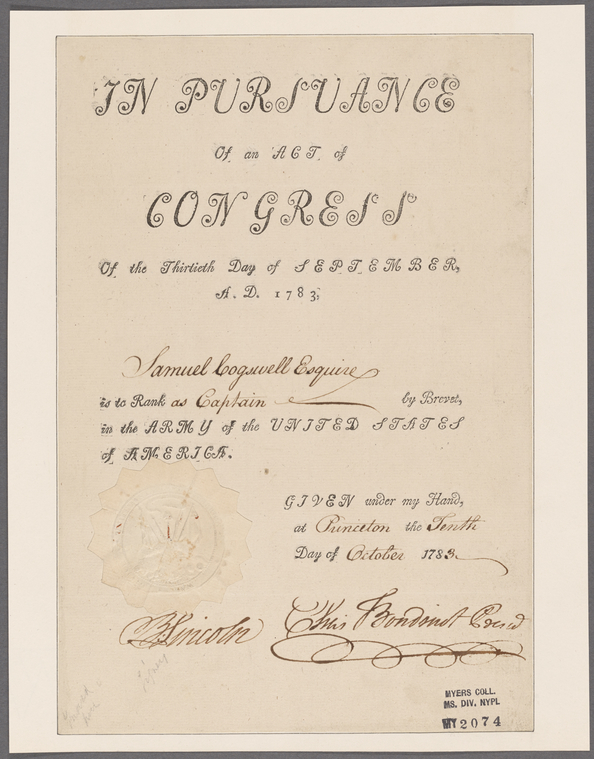 IN PURSUANCE
Of an ACT of
CONGRESS
Of the Thirtieth Day of SEPTEMBER,
A. D. 1783,
Samuel Cogswell Esquire
is to Rank as Captain by Brevet,
in the ARMY of the UNITED STATES
of AMERICA.
GIVEN under my Hand,
at Princeton the Tenth
Day of October 1783.
B Lincoln
Elias Boudinot Presid
MYERS COLL.
MS. DIV. NYPL
MY 2074